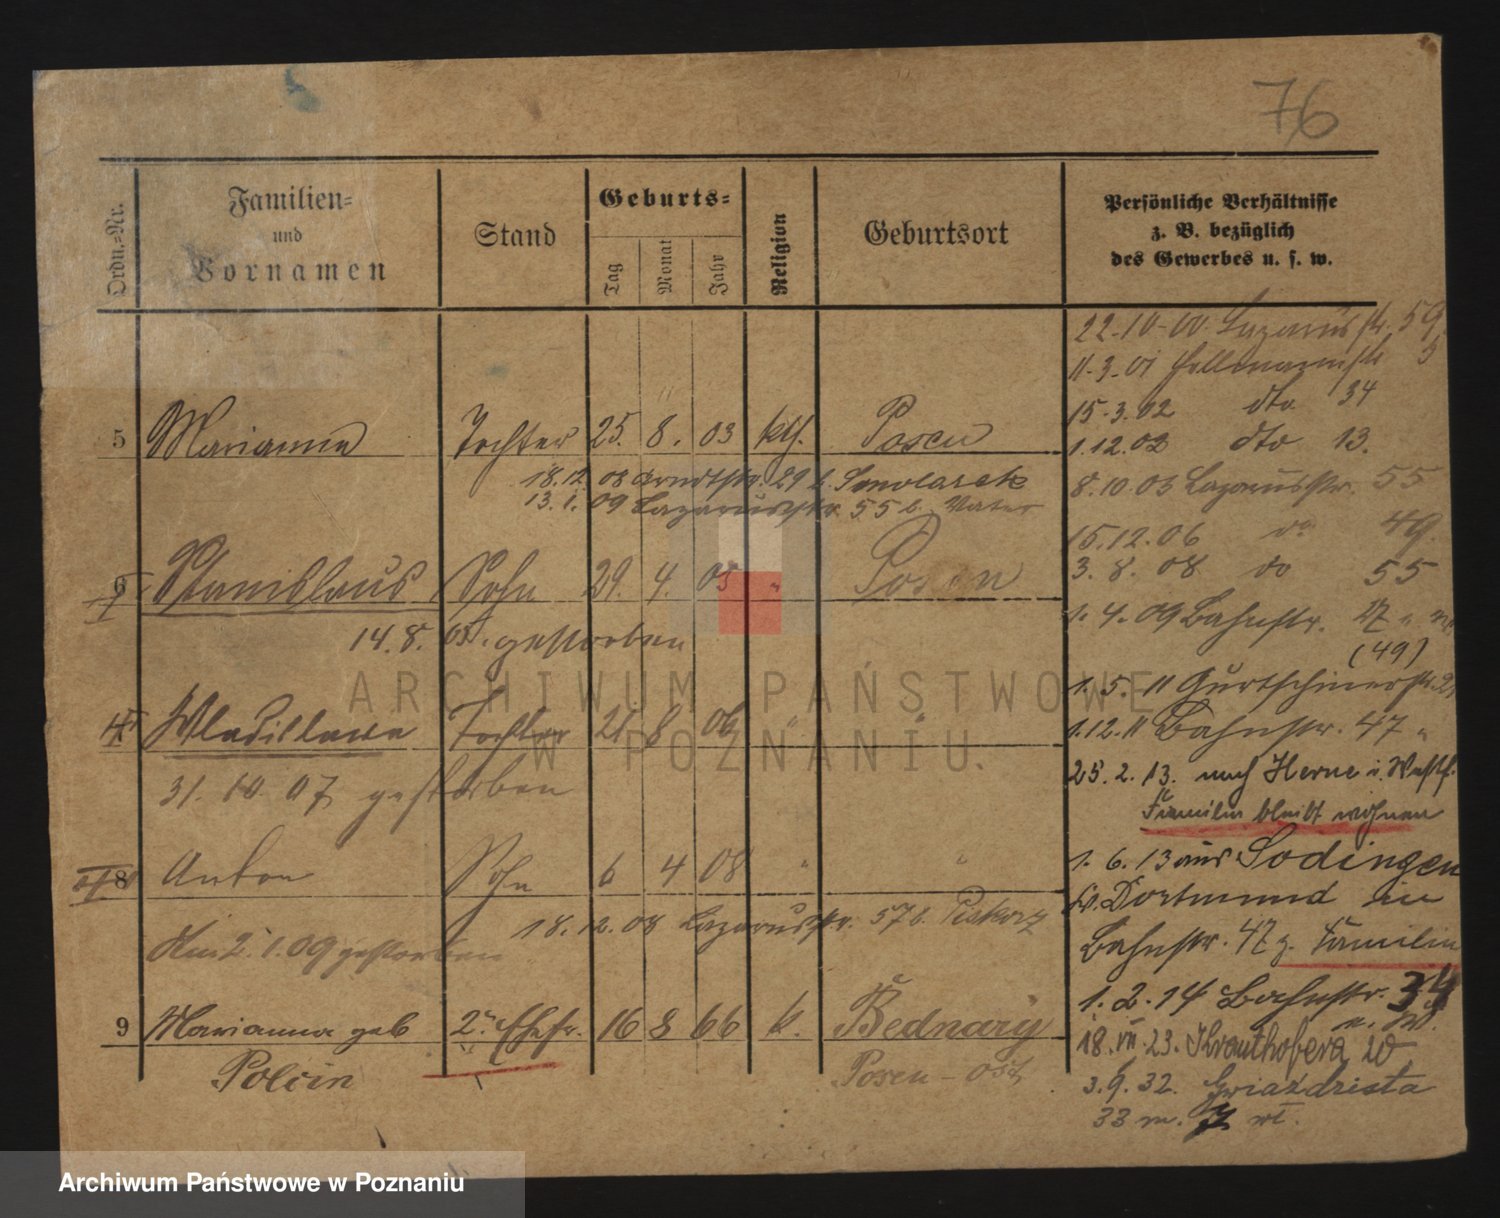 76
Ordn.-Nr.
Familien-
und
Vornamen
Stand
Geburts-
Tag
Monat
Jahr
Religion
Geburtsort
Persönliche Verhältnisse
z. B. bezüglich
des Gewerbes u. s. w.
22.10.00 Lazarusstr. 59.
11.3.01 5
15.3.02 dto 34
1.12.02 dto 13.
5 Marianna Tochter 25. 8. 03 kth. Posen
8.10.03 Lazarusstr. 55
18.12. 08 Arndtstr. 29 b. Smolarek
13.1.09 Lazarusstr. 55 b. Vater
15.12.06 do 49.
3.8.08 do 55
6 Stanislaus Sohn 29. 4. 05 " Posen
1.4.09 Bahnstr.
(49)
14.8. 05. gestorben
1.5.11 Gurtschinerstr.
Wladislawa Tochter 21 8 06 " "
1.12.11 Bahnstr. 47 "
25.2.13. nach Herne i. Westf.
Familie bleibt wohnen
31.10.07 gestorben
1.6.13 aus Sodingen
8 Anton Sohn 6 4 08 " "
b. Dortmund in
18.12.08 Lazarusstr. 57 b. Piskorz
Bahnstr. 47 z. Familie
Am 2.1.09 gestorben
1.2.14 Bahnstr. 34
9 Marianna geb 2. Ehefr. 16 8 66 k. Bednary
18.VII.23. Krauthofera 20
Polcin
Posen - Ost
3.9.32. Gwiaździsta
33 m. 7
ARCHIWUM PAŃSTWOWE
W POZNANIU.
Archiwum Państwowe w Poznaniu